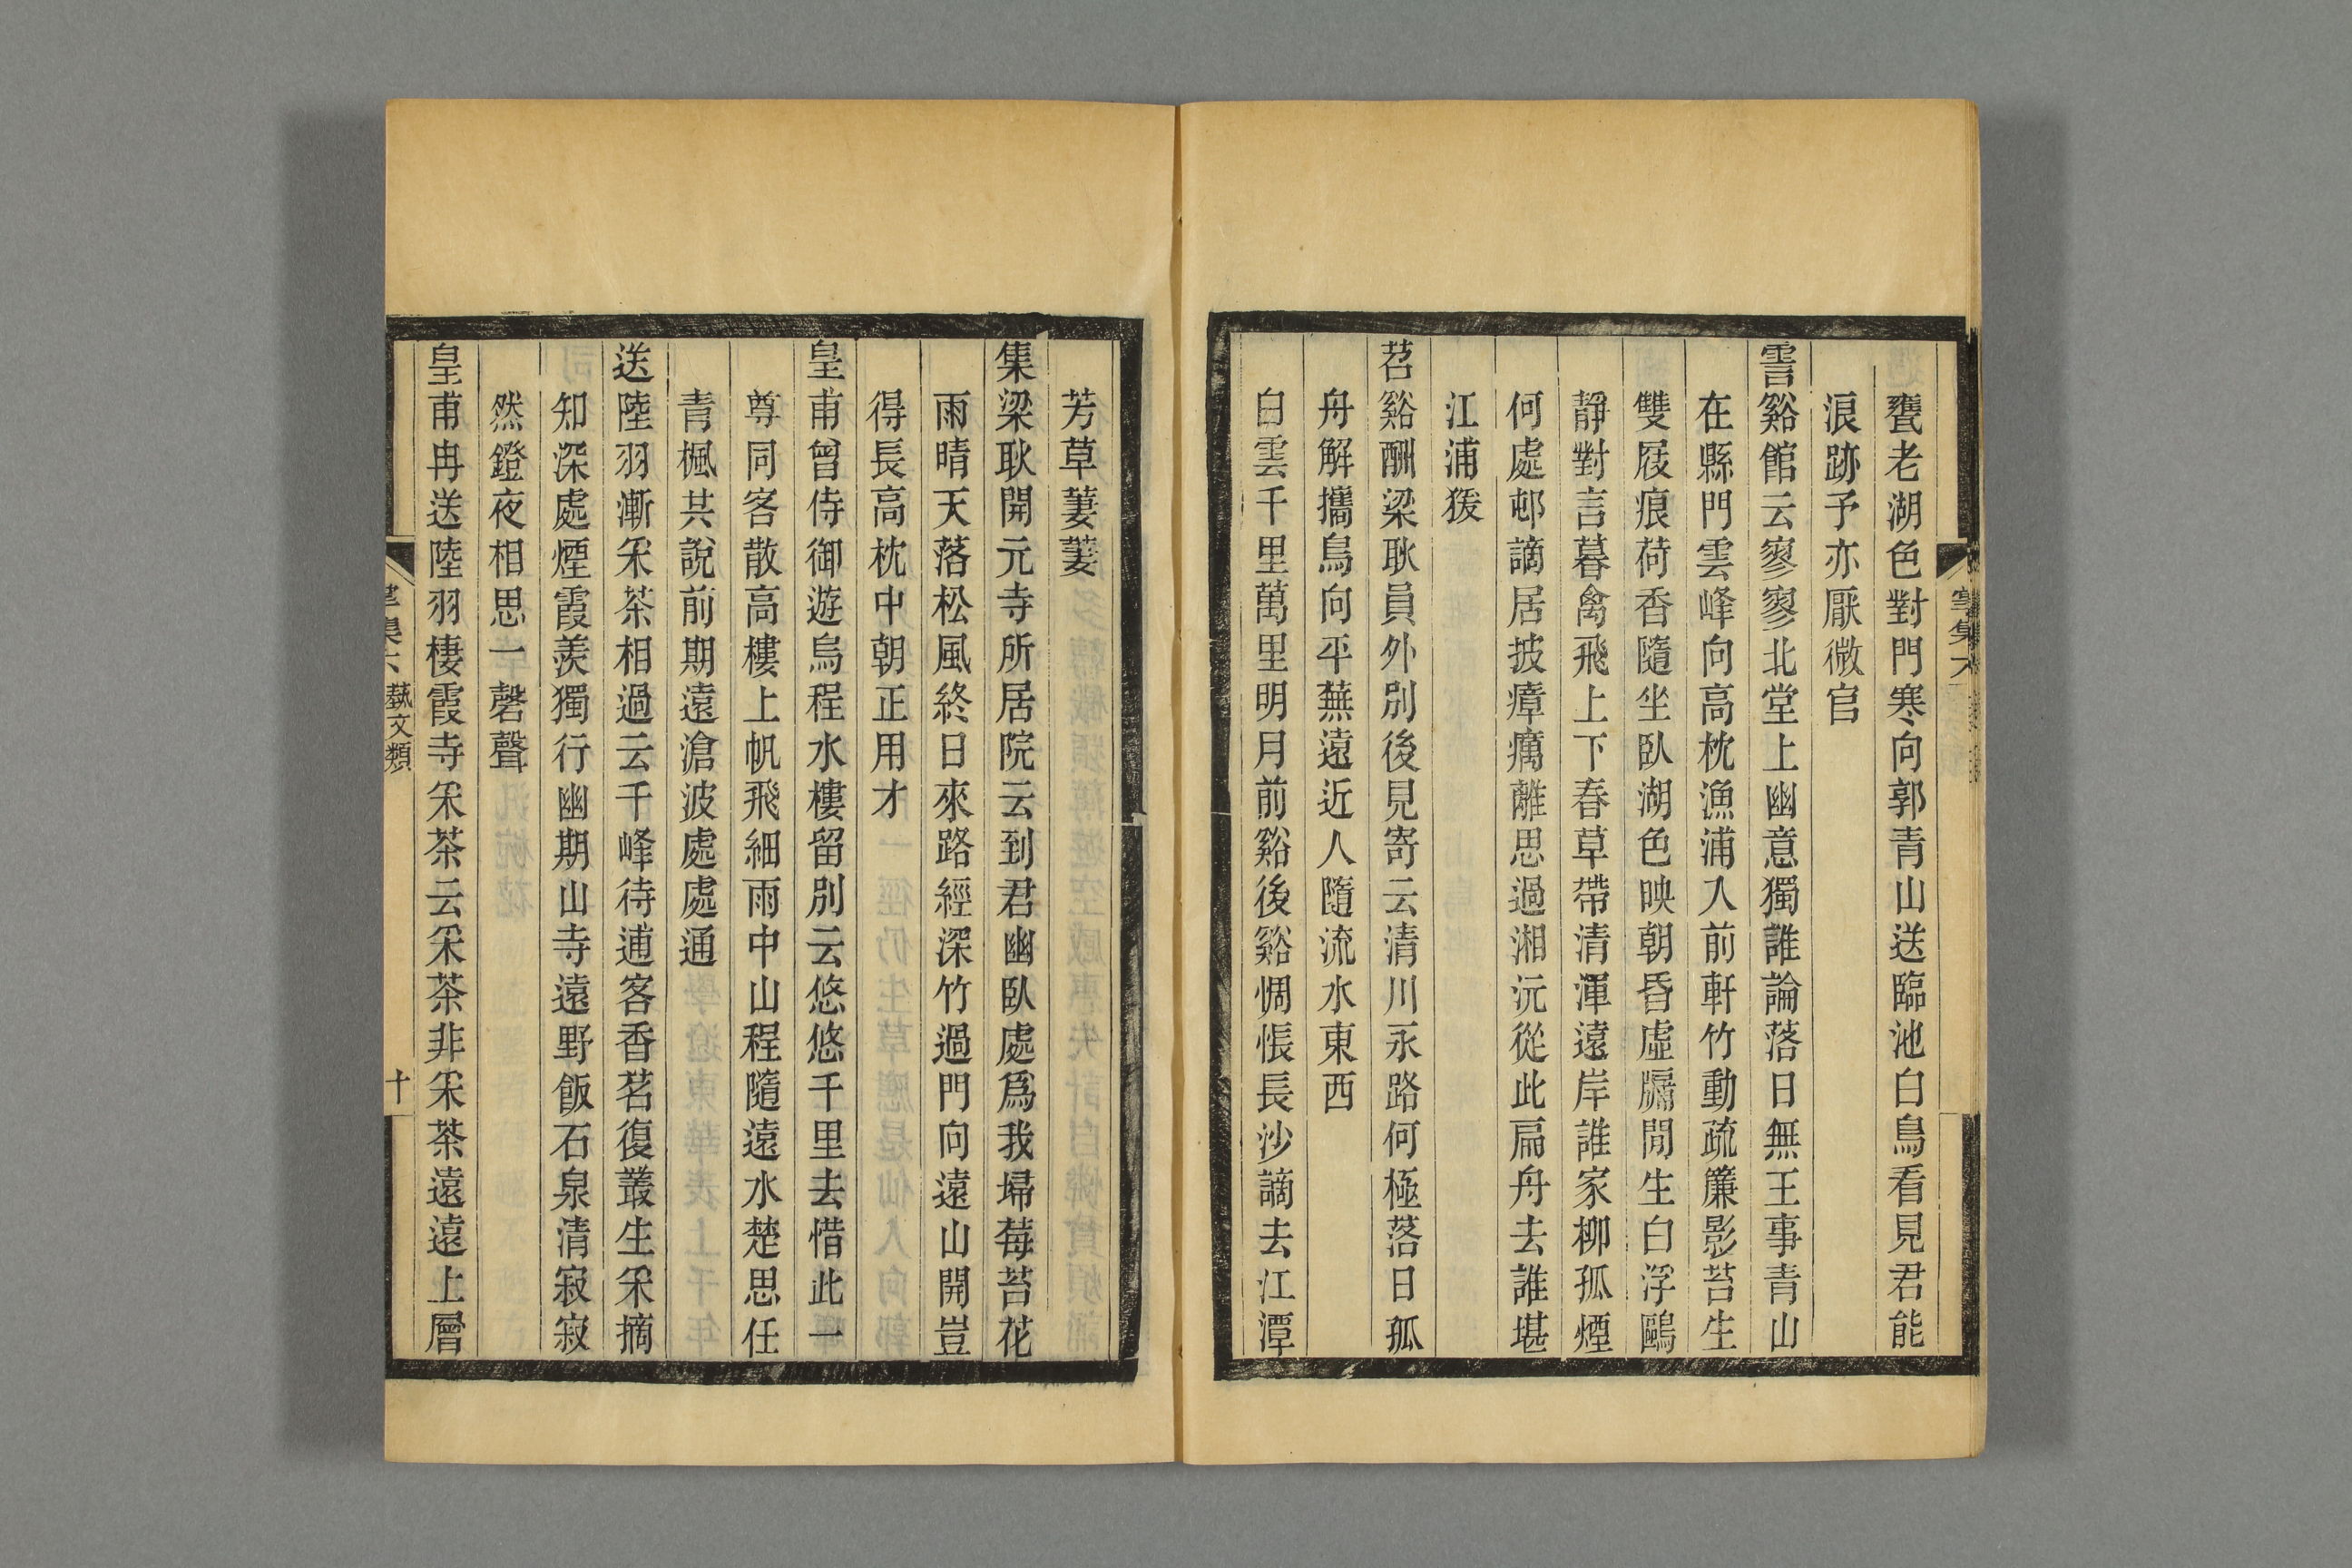 甕老湖色對門寒向郭青山送臨池白鳥看見君能
浪跡予亦厭微官
霅谿館云寥寥北堂上幽意獨誰論落日無王事青山
在縣門雲峰向高枕漁浦入前軒竹動疏簾影苔生
雙屐痕荷香隨坐臥湖色映朝昏虛牖閒生白浮鷗
靜對言暮禽飛上下春草帶清渾遠岸誰家柳孤煙
何處邨謫居披瘴癘離思過湘沅從此扁舟去誰堪
江浦猨
苕谿酬梁耿員外別後見寄云清川永路何極落日孤
舟解攜鳥向平蕪遠近人隨流水東西
白雲千里萬里明月前谿後谿惆悵長沙謫去江潭
芳草萋萋
集梁耿開元寺所居院云到君幽臥處爲我埽莓苔花
雨晴天落松風終日來路經深竹過門向遠山開豈
得長高枕中朝正用才
皇甫曾侍御遊烏程水樓留別云悠悠千里去惜此一
尊同客散高樓上帆飛細雨中山程隨遠水楚思任
青楓共說前期遠滄波處處通
送陸羽漸采茶相過云千峰待逋客香茗復叢生采摘
知深處煙霞羨獨行幽期山寺遠野飯石泉清寂寂
然鐙夜相思一磬聲
皇甫冉送陸羽棲霞寺采茶云采茶非采茶遠遠上層
藝文類
十